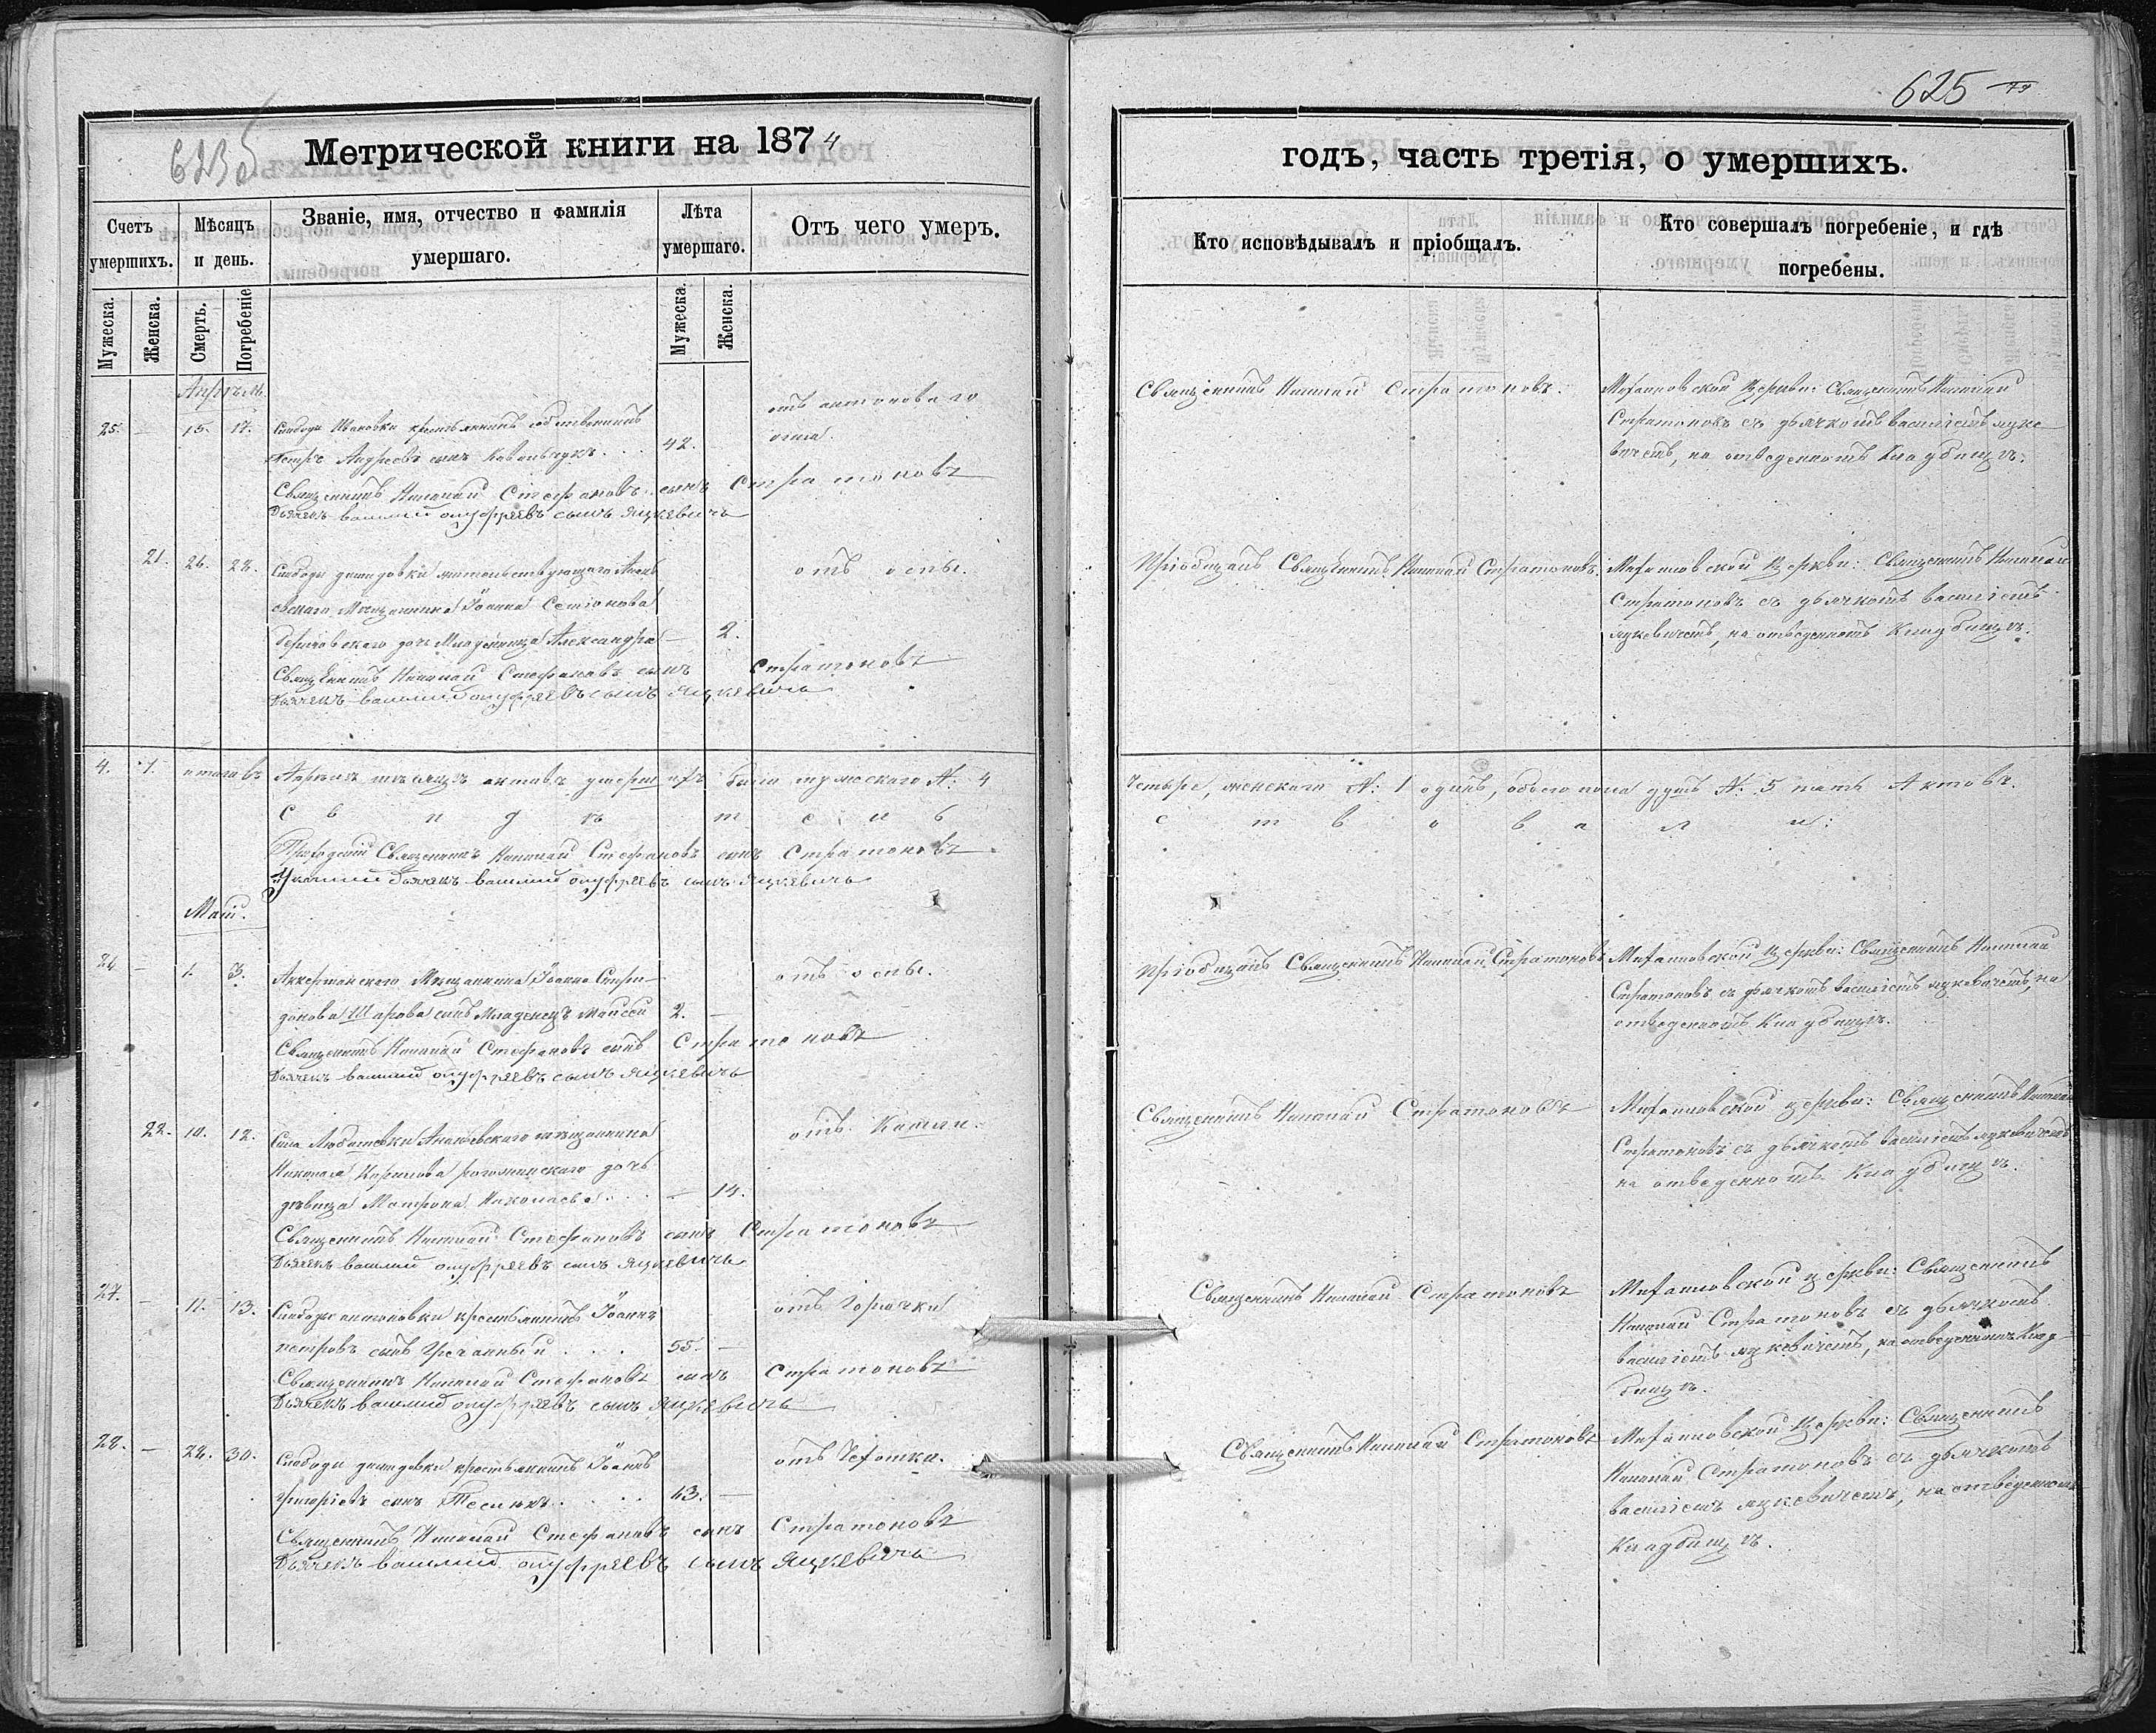 623 б
Метрической книги на 1874
Счетъ умершихъ.
Мѣсяцъ и день.
Званіе, имя, отчество и фамилія умершаго.
Лѣта умершаго.
Отъ чего умеръ.
Мужеска.
Женска.
Смерть.
Погребеніе
Мужеска.
Женска.
Апрѣль.
25. — 15. 17.
Слободы Ивановки крестьянинъ собственникъ
Петръ Андреевъ сынъ 42.
отъ антонова го
огня.
Священникъ Николай Стефановъ сынъ Стратоновъ
Дьячекъ василий онуфриевъ сынъ яцкевичь
21. 26. 28.
Слободы демидовки жительствующаго Анань
евскаго Мѣщанина Іоанна Семіонова
дочь Младеница Александра — 2.
отъ оспы.
Священникъ Николай Стефановъ сынъ Стратоновъ
Дьячекъ василий онуфриевъ сынъ яцкевичь
4. 1. итого въ Апрѣлѣ мѣсяцѣ актовъ умершихъ было мужскаго №. 4
С в и д ѣ т е л ь
Приходский Священникъ Николай Стефановъ сынъ Стратоновъ
Дьячекъ василий онуфриевъ сынъ яцкевичь
Май.
26 — 1. 3.
Аккерманскаго Мѣщанина Іоанна Спири-
донова сынъ Младенецъ Моисей 2. —
отъ оспы.
Священникъ Николай Стефановъ сынъ Стратоновъ
Дьячекъ василий онуфриевъ сынъ яцкевичь
22. 10. 12.
Села Любашевки Ананьевскаго мѣщанина
Николая дочь
дѣвица Матрона Николаева — 14.
отъ Кашля.
Священникъ Николай Стефановъ сынъ Стратоновъ
Дьячекъ василий онуфриевъ сынъ яцкевичь
27. — 11. 13.
Слободы антоновки крестьянинъ Іоаннъ
петровъ сынъ Гречанный 55. —
отъ Горячки
Священникъ Николай Стефановъ сынъ Стратоновъ
Дьячекъ василий онуфриевъ сынъ яцкевичь
28. — 28. 30.
Слободы демидовки крестьянинъ Іоаннъ
Григоріевъ сынъ 43. —
отъ Чехотки.
Священникъ Николай Стефановъ сынъ Стратоновъ
Дьячекъ василий онуфриевъ сынъ яцкевичь
625
годъ, часть третія, о умершихъ.
Кто исповѣдывалъ и пріобщалъ.
Кто совершалъ погребеніе, и гдѣ погребены.
Священникъ Николай Стратоновъ.
Михаиловской Церкви: Священникъ Николай
Стратоновъ съ дьячкомъ василіемъ яцке
вичемъ, на отведенномъ Кладбищѣ.
Пріобщалъ Священникъ Николай Стратоновъ.
Михаиловской Церкви: Священникъ Николай
Стратоновъ съ дьячкомъ василіемъ
яцкевичемъ, на отведенномъ Кладбищѣ.
четыре, женскаго №: 1 одинъ, обоего пола душъ №. 5 пять Актовъ.
с т в о в а л и:
Пріобщалъ Священникъ Николай Стратоновъ
Михаиловской Церкви: Священникъ Николай
Стратоновъ съ дьячкомъ василіемъ яцкевичемъ, на
отведенномъ Кладбищѣ.
Священникъ Николай Стратоновъ
Михаиловской церкви: Священникъ Николай
Стратоновъ съ дьячкомъ василіемъ яцкевичемъ
на отведенномъ Кладбищѣ.
Священникъ Николай Стратоновъ
Михаиловской церкви: Священникъ
Николай Стратоновъ съ дьячкомъ
василіемъ яцкевичемъ, на отведенномъ Клад-
бищѣ.
Священникъ Николай Стратоновъ
Михаиловской Церкви: Священникъ
Николай Стратоновъ съ дьячкомъ
василіемъ яцкевичемъ, на отведенномъ
Кладбищѣ.